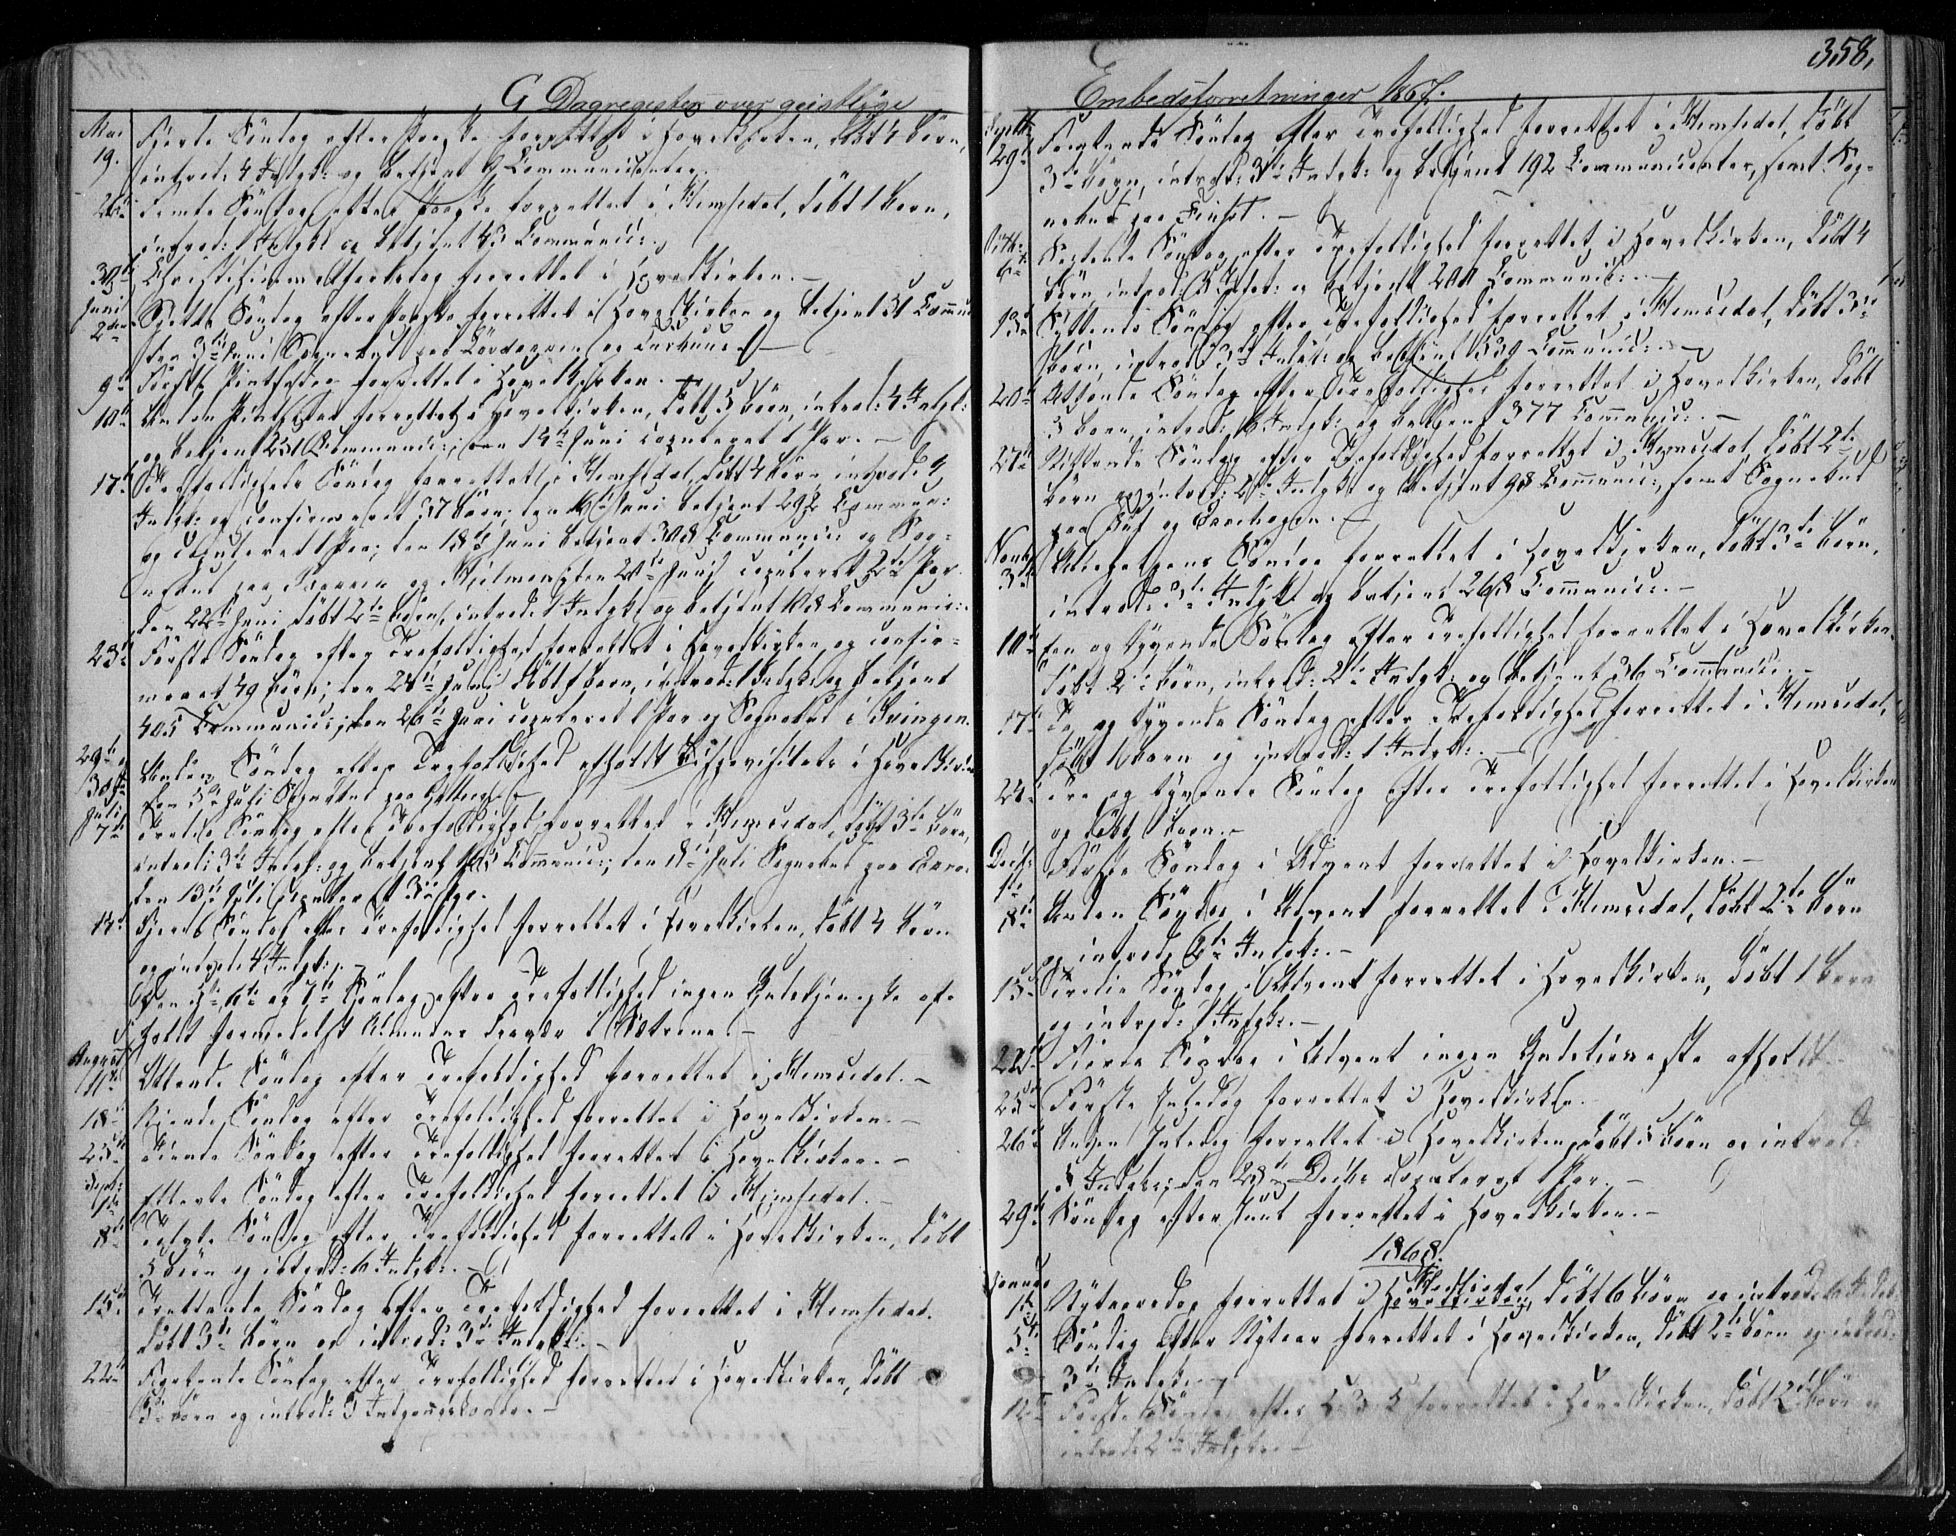 358.
G Dagregister over geistlige
Embedsforretninger 1867.
Mai
19. Fjerde Söndag efter Paaske forrettet i Hovedkirken, döbt 4 Börn,
introd: 4 Indgk: og betjent Communicanter.
26 Femte Söndag efter Paaske forrettet i Hemsedal, döbt 1 Barn,
introd: 1 Indgk: og betjent 45 Communic:
30te Christi Himmelfartsdag forrettet i Hovedkirken. –
Juni
2den Sjette Söndag efter Paaske forrettet i Hovedkirken og betjent 51 Commun
den Juni Sognebud paa og
9de Förste Pintsedag forrettet i Hovedkirken. –
10de Anden Pintsedag forrettet i Hovedkirken, döbt 5 Börn, introd: 4 Indgk:
og betjent 251 Communic:; den 14de Juni copuleret 1 Par. –
17 Trefoldigheds Söndag forrettet i Hemsedal, döbt 4 Börn introd: 4
Indgk: og confirmeret 37 Börn; den Juni betjent 292 Commun:
og copuleret 1 Par; den 18de Juni betjent 308 Communic: og Sog-
nebud paa og den 20de Juni copuleret 2de Par
den 22de Juni döbt 2de Börn, introd: 1 Indgk: og betjent 108 Communic:
23de Förste Söndag efter Trefoldighed forrettet i Hovedkirken og confir-
meret 49 Börn; den Juni döbt 1 Barn, introd: 1 Indgk: og betjent
405 Communic:; den 26de Juni copuleret 1 Par og Sognebud i Svingen.
29de og
30te Anden Söndag efter Trefoldighed afholdt Bispevisitats i Hovedkirken
den Juli Sognebud paa
Juli
7de Tredie Söndag efter Trefoldighed forrettet i Hemsedal, döbt 3de Börn,
introd: 3de Indgk: og betjent Communic:; den Juli Sognebud paa
den 13de Juli copuleret 3de Par.
14de Fjerde Söndag efter Trefoldighed forrettet i Hovedkirken, döbt 4 Börn
og introd: 4 Indgk: –
Den 5te, 6te og 7de Söndag efter Trefoldighed ingen Gudstjeneste af-
holdt formedelst Almuens Fravær i Sætrene. –
August
11te Ottende Söndag efter Trefoldighed forrettet i Hemsedal. –
18de Niende Söndag efter Trefoldighed forrettet i Hovedkirken. –
25de Tiende Söndag efter Trefoldighed forrettet i Hovedkirken. –
Sept:
1ste Ellevte Söndag efter Trefoldighed forrettet i Hemsedal. –
8de Tolvte Söndag efter Trefoldighed forrettet i Hovedkirken, döbt
5 Börn og introd: 6 Indgk: –
15de Trettende Söndag efter Trefoldighed forrettet i Hemsedal.
döbt 3de Börn og introd: 3de Indgk: –
22de Fjortende Söndag efter Trefoldighed forrettet i Hovedkirken, döbt
5 Börn og introd: 5 Indgangskoner. –
Septb:
29de Femtende Söndag efter Trefoldighed forrettet i Hemsedal, döbt
3de Börn, introd: 3de Indgk: og betjent 192 Communicanter, samt Sog-
nebud paa Finset. –
Octb:
6te Sextende Söndag efter Trefoldighed forrettet i Hovedkirken, döbt 4
Börn, introd: 5 Indgk: og betjent 200 Communic: –
13de Syttende Söndag efter Trefoldighed forrettet i Hemsedal, döbt 3de
Börn, introd: 3de Indgk: og betjent 159 Communic: –
20de Attende Söndag efter Trefoldighed forrettet i Hovedkirken, döbt
5 Börn, introd: 6 Indgk: og betjent 377 Communic: –
27de Nittende Söndag efter Trefoldighed forrettet i Hemsedal, döbt 2de
Börn og introd: 2de Indgk: og betjent 98 Communic:, samt Sognebud
paa og
Novb:
3die Allehelgens Söndag forrettet i Hovedkirken, döbt Börn,
introd: Indgk: og betjent 268 Communic: –
10de En og tyvende Söndag efter Trefoldighed forrettet i Hovedkirken,
döbt 2de Börn, introd: 2de Indgk: og betjent 36 Communic: –
17de To og tyvende Söndag efter Trefoldighed forrettet i Hemsedal,
döbt 1 Barn og introd: 1 Indgk: –
24de Tre og tyvende Söndag efter Trefoldighed forrettet i Hovedkirken
og döbt 1 Barn. –
Decb:
1ste Förste Söndag i Advent forrettet i Hovedkirken. –
8de Anden Söndag i Advent forrettet i Hemsedal, döbt 2de Börn
og introd: 2de Indgk: –
15de Tredie Söndag i Advent forrettet i Hovedkirken, döbt 1 Barn
og introd: 1 Indgk: –
22de Fjerde Söndag i Advent ingen Gudstjeneste afholdt
25de Förste Juledag forrettet i Hovedkirken.
26de Anden Juledag forrettet i Hovedkirken, döbt 5 Börn og introd:
5 Indgk:; den 28de Decbr: copuleret 1 Par. –
29de Söndag efter Juul forrettet i Hovedkirken. –
1868.
Januar
1ste Nytaarsdag forrettet i Hovedkirken, Hemsedal döbt 6 Börn og introd: 6 Indgk:
5te Söndag efter Nytaar forrettet i Hovedkirken, döbt 2de Börn og introd:
3de Indgk: –
12te Förste Söndag efter H. 3 K. forrettet i Hovedkirken, döbt 2de Börn og
introd: 2de Indgk: –